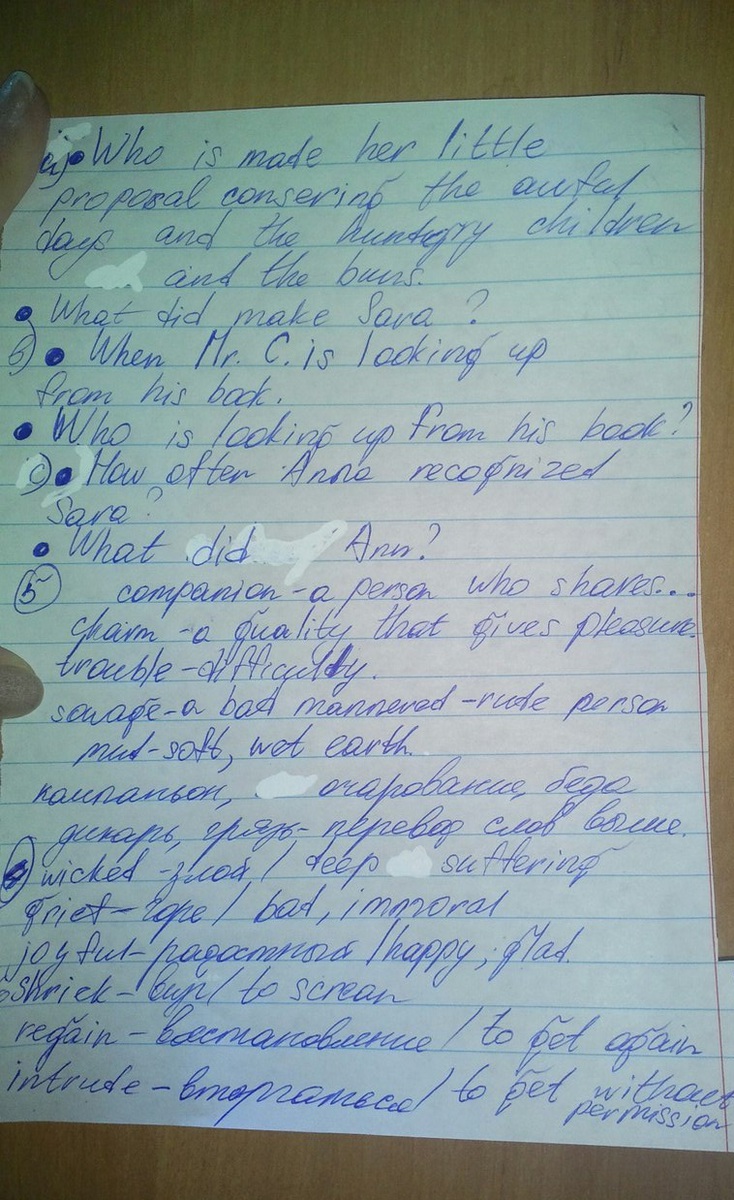 a) • Who is made her little
proposal consering the awful
days and the hundgry children
and the buns.
• What did make Sara ?
b) • When Mr. C. is looking up
from his book.
• Who is looking up from his book?
c) • How often Anna recognized
Sara?
• What did Ann?
5 companion - a person who shares...
charm - a quality that gives pleasure.
trouble - difficulty.
savage - a bad mannered - rude person
mud - soft, wet earth.
компаньон, очарование, беда
дикарь, грязь - перевод слов выше.
wicked - злой / deep suffering
grief - горе / bad, immoral
joyful - радостный / happy, glad.
shriek - визг / to screan
regain - восстановление / to get again
intrude - вторгаться / to get without
permission